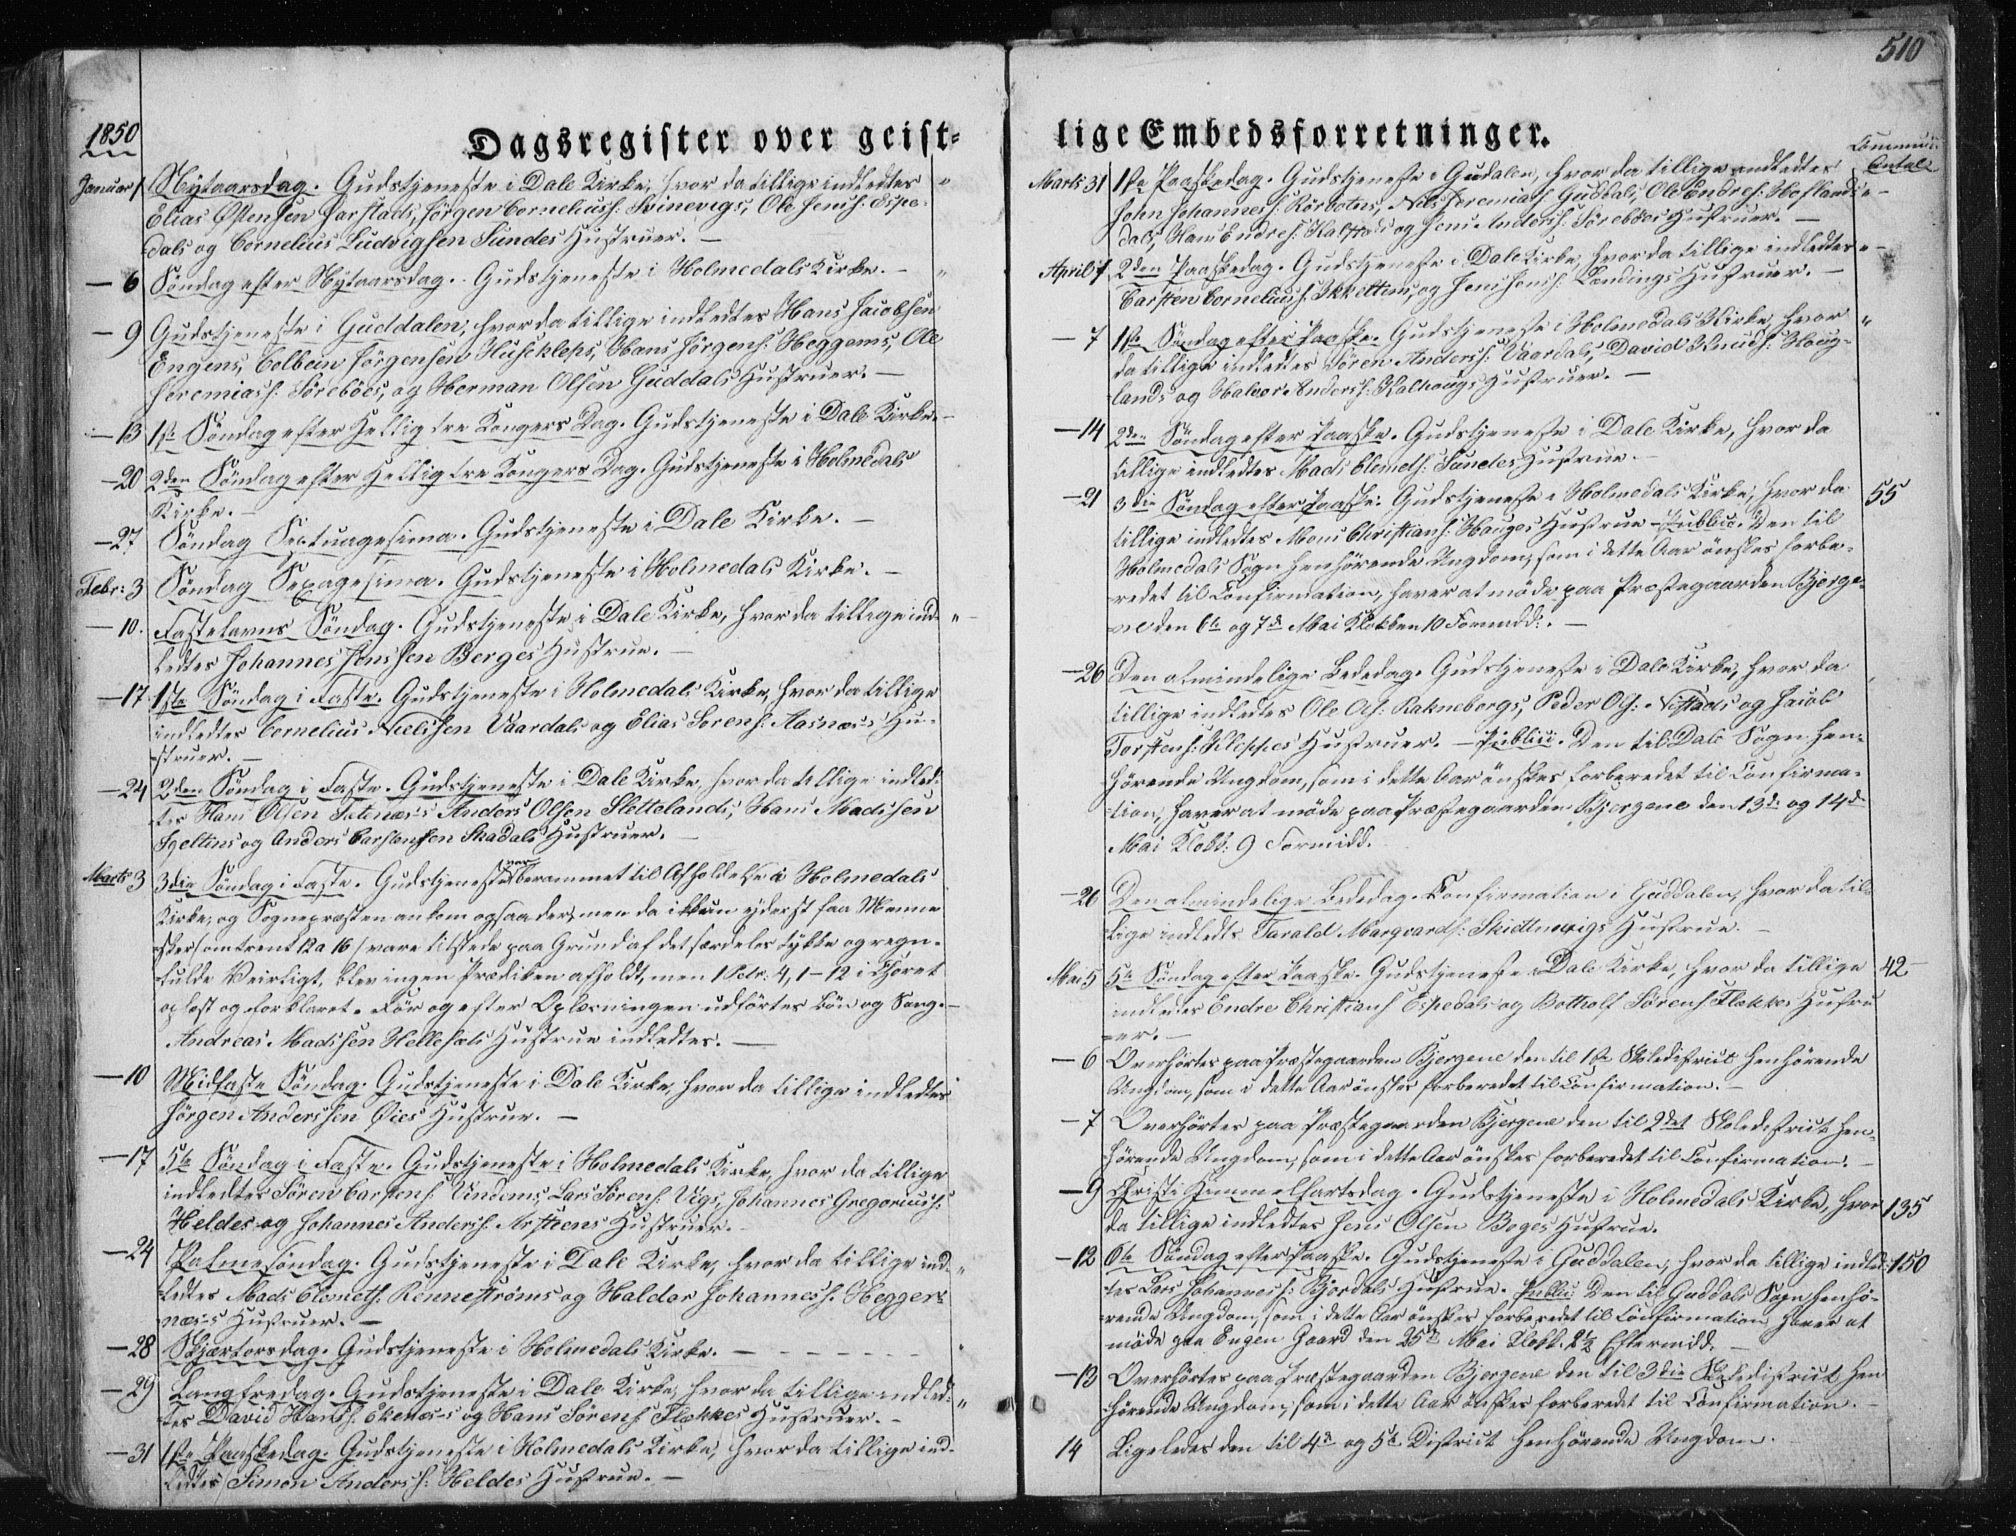 510
Dagsregister over geist-
1850
Januar 1 Nytaarsdag. Gudstjeneste i Dale Kirke, hvor da tillige indledtes "
Elias Østensen Harstads, Jörgen Corneliuss: Svinevigs, Ole Jens: Espe-
dals og Cornelius Ludvigsen Sundes Hustruer. —
— 6 Söndag efter Nytaarsdag. Gudstjeneste i Holmedals Kirke. — "
— 9 Gudstjeneste i Guddalen, hvor da tillige indledtes Hans Jacobsen
Engens, Colbein Jörgensen Husekleps, Hans Jörgens: Heggems, Ole
Jeremiass: Söreböes, og Herman Olsen Guddals Hustruer. —
— 13 1ste Söndag efter Hellig tre Kongers Dag. Gudstjeneste i Dale Kirke. —
— 20 2den Söndag efter Hellig tre Kongers Dag. Gudstjeneste i Holmedals
Kirke. —
— 27 Söndag Septuagesima. Gudstjeneste i Dale Kirke. —
Febr: 3 Söndag Sexagesima. Gudstjeneste i Holmedals Kirke. —
— 10. Fastelavns Söndag. Gudstjeneste i Dale Kirke, hvor da tillige ind- "
ledtes Johannes Jenssen Berges Hustrue. —
— 17 1ste Söndag i Faste. Gudstjeneste i Holmedals Kirke, hvor da tillige
indledtes Cornelius Nielssen Vaardals og Elias Sörens: Aasnæs's Hu-
struer. —
— 24 2den Söndag i Faste. Gudstjeneste i Dale Kirke, hvor da tillige indled-
tes Hans Olsen Anders Olsen Slettelands, Hans Madssen
og Anders Carstensen Skadals Hustruer. —
Marts 3 3die Söndag i Faste. Gudstjeneste var berammet til Afholdelse i Holmedals
Kirke, og Sognepræsten ankom ogsaa der, men da ikkun yderst faa Menne
sker (omtrent 12 a 16) vare tilstede paa Grund af det særdeles tykke og regn-
fulde Veirligt, blev ingen Prædiken afholdt, men 1 Petr: 4, 1–12 i Choret
oplæst og forklaret. Før og efter Oplæsningen udførtes Bön og Sang. —
Andreas Madssen Hellesæts Hustrue indledtes. —
— 10 Midfaste Söndag. Gudstjeneste i Dale Kirke, hvor da tillige indledtes
Jörgen Anderssen Øies Hustrue. —
— 17 5te Söndag i Faste. Gudstjeneste i Holmedals Kirke, hvor da tillige
indledtes Sören Carstens: Lars Sörens: Vigs, Johannes Gregoriuss:
Heldes og Johannes Anderss: Hustruer. —
— 24 Palmesöndag. Gudstjeneste i Dale Kirke, hvor da tillige ind- "
ledtes Mads Clemets: Rennestrøms og Haldor Johanness: Hegger-
næs's Hustruer. —
— 28 Skjærtorsdag. Gudstjeneste i Holmedals Kirke. —
— 29 Langfredag. Gudstjeneste i Dale Kirke, hvor da tillige indled- "
tes David Hanss: Ekenæs's og Hans Sörens: Flækkes Hustruer. —
— 31 1ste Paaskedag. Gudstjeneste i Holmedals Kirke, hvor da tillige ind-
ledtes Simon Anderss: Heldes Hustrue. —
lige Embedsforretninger.
Communi
Antal
Marts 31 1ste Paaskedag. Gudstjeneste i Guddalen, hvor da tillige indledtes
John Johanness: Nils Jeremiass: Guddals, Ole Endres: Hoflands
dals, Hans Endres: og Jens Anderss: Söreböes Hustruer. —
April 1 2den Paaskedag. Gudstjeneste i Dale Kirke, hvor da tillige indledtes
Carsten Corneliuss: og Jens Jenss: Hustruer. —
— 7 1ste Söndag efter Paaske. Gudstjeneste i Holmedals Kirke, hvor "
da tillige indledtes Sören Anderss: Vaardals, David Knuds: Houg-
lands og Halvor Anderss: Kalhougs Hustruer. —
— 14 2den Söndag efter Paaske. Gudstjeneste i Dale Kirke, hvor da
tillige indledtes Mads Clemets: Sundes Hustrue. —
— 21 3die Söndag efter Paaske. Gudstjeneste i Holmedals Kirke, hvor da 55
tillige indledtes Mons Christians: Hauges Hustrue — Public. Den til
Holmedals Sogn henhörende Ungdom, som i dette Aar önskes forbe-
redet til Confirmation, haver at möde paa Præstegaarden Bjerge-
ne den 6te og 7de Mai Klokken 10 Formidd: —
— 26 Den almindelige Bededag. Gudstjeneste i Dale Kirke, hvor da
tillige indledtes Ole Ols: Rakneborgs, Peder Ols: Nistads og Jacob
Torstens: Kleppes Hustruer. — Public. Den til Dale Sogn hen-
hörende Ungdom, som i dette Aar önskes forberedet til Confirma-
tion, haver at möde paa Præstegaarden Bjergene den 13de og 14de
Mai Klokk: 9 Formidd.
— 26 Den almindelige Bededag. Confirmation i Guddalen, hvor da til-
lige indledtes Tarald Marqvards: Hustrue. —
Mai 5 5te Söndag efter Paaske. Gudstjeneste i Dale Kirke, hvor da tillige 42
indledtes Endre Christians: Espedals og Botholf Sörens: Flækkes Hustru
er. —
— 6 Overhörtes paa Præstegaarden Bjergene den til 1ste Skoledistrict henhörende
Ungdom, som i dette Aar önskes forberedet til Confirmation. —
— 7 Overhörtes paa Præstegaarden Bjergene den til 2det Skoledistrict hen-
hörende Ungdom, som i dette Aar önskes forberedet til Confirmation. —
— 9 Christi Himmelfartsdag. Gudstjeneste i Holmedals Kirke, hvor 135
da tillige indledtes Jens Olsen Boges Hustrue.
— 12 6te Söndag efter Paaske. Gudstjeneste i Guddalen, hvor da tillige indled- 150
tes Lars Johanness: Bjordals Hustrue. Public: Den til Guddals Sogn henhö-
rende Ungdom, som i dette Aar önskes forberedet til Confirmation haver at
möde paa Engen Gaard den 25de Mai Klokk: 2½ Eftermidd.
— 13 Overhörtes paa Præstegaarden Bjergene den til 3die Skoledistrict hen
hörende Ungdom, som i dette Aar önskes forberedet til Confirmation. —
14 Ligeledes den til 4de og 5te District henhörende Ungdom.